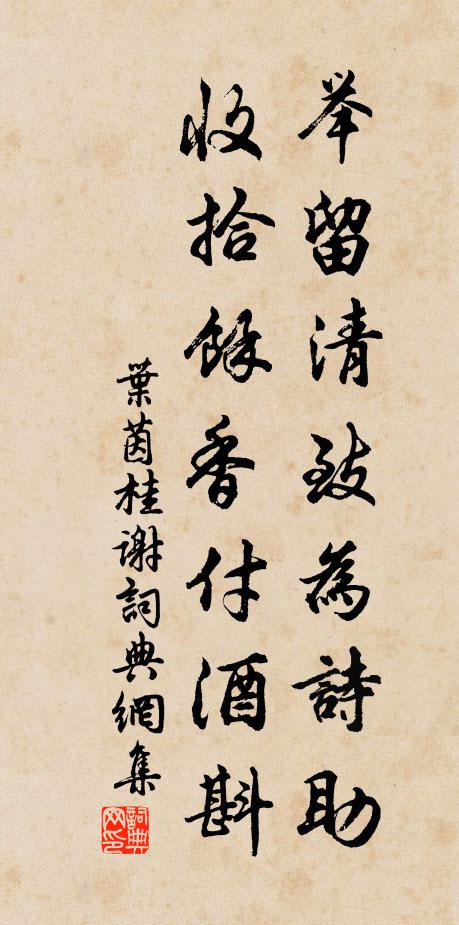 举留清致為詩助
收拾餘香付酒斟
葉茵桂谢詞典網集
詞典网印